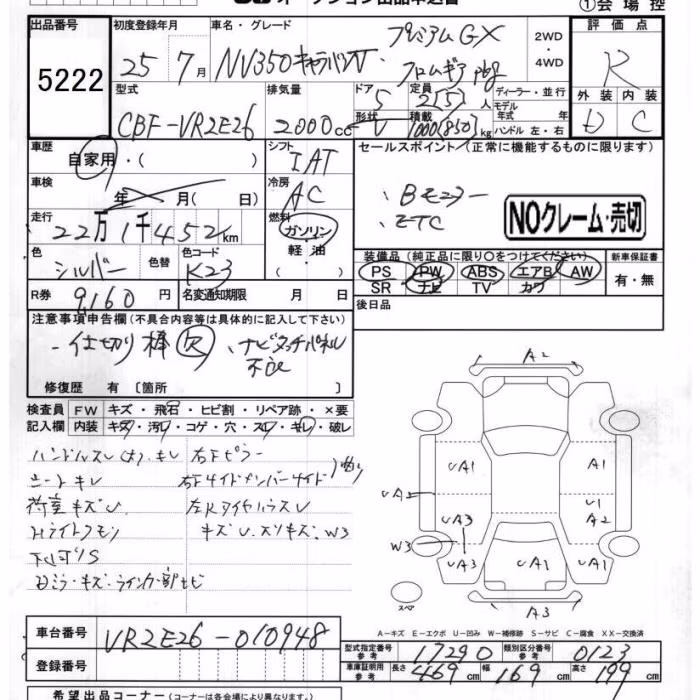 ①会場控
出品番号 5222
初度登録年月 25年7月
車名・グレード NV350キャラバンV プレミアムGX
クロムギアpkg
2WD・4WD
型式 CBF-VR2E26
排気量 2000cc
ドア形状 5 V
定員 2(5)人
積載 1000(850)kg
ディーラー・並行
モデル年式 年式
ハンドル 左・右
評価点 R
外装 D
内装 C
車歴 自家用・( )
シフト IAT
セールスポイント(正常に機能するものに限ります)
車検 年 月(日)
冷房 AC
Bモニター
ETC
NOクレーム・売切
走行 22万1千452km
燃料 ガソリン・軽油
色 シルバー
色替
色コード K23
装備品(純正品に限り○をつけてください)
PS PW ABS エアB AW
SR ナビ TV カワ
新車保証書 有・無
R券 9,160円
名変通知期限 月 日
後日品
注意事項申告欄(不具合内容等は具体的に記入して下さい)
仕切り棒欠 ナビタッチパネル
不良
修復歴 有 〔箇所 〕
検査員記入欄
FW キズ・飛石・ヒビ割・リペア跡・×要
内装 キズ・汚れ・コゲ・穴・スレ・キレ・破レ
ハンドルスレ(大)・キレ 右Fピラー
シートキレ 右Fサイドメンバーサイド
荷室キズU 左Rタイヤハウス U
Hライトクモリ キズU.スリキズ.W3
下回りS
A2
UA1 A1
UA2 U1
A2
UA3
W3
UA3 UA1 UA1
A3
スペア
A－キズ E－エクボ U－凹み W－補修跡 S－サビ C－腐食 XX－交換済
車台番号 VR2E26-010948
登録番号
型式指定番号 参考 17290
類別区分番号 参考 0123
車庫証明用 参考 長さ 469cm 幅 169cm 高さ 199cm
希望出品コーナー(コーナーは各会場により異なります)